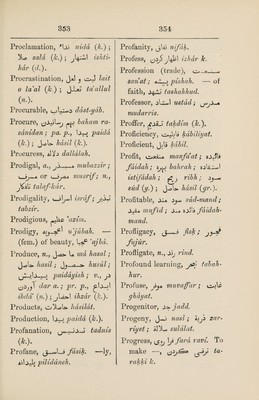 353
354
Proclamation, ندا nidá (k.);
صلا salá (k.); اشتهار ishti-
hár (d.).
Procrastination, ليت و لعل lait
o la'al (k.); تعلل ta'allul
(n.).
Procurable, دستیاب dást-yáb.
Procure, بهم رسانیدن baham ra-
sánídan; pa. p., پیدا paidá
(k.); حاصل hásil (k.).
Procuress, دلاله dallálah.
Prodigal, a., مبذر mubazzir;
مسرف or مصرف musrif; n.,
تلف كار talaf-kár.
Prodigality, اسراف isráf; تبذير
tabzír.
Prodigious, عظيم 'azím.
Prodigy, اعجوبه u'júbah. —
(fem.) of beauty, عجبا 'ajbá.
Produce, n., ما حصل má hasal;
حاصل hasil; حصول husúl;
پیدایش paidáyish; v., در
آوردن dar a.; pr. p., ابداع
ibdá' (n.); احضار ihzár (k.).
Products, حاصلات hásilát.
Production, پیدا paidá (k.).
Profanation, تدنيس tadnís
(k.).
Profane, فاسق fásiḳ. —ly,
پلیدانه pilídáneh.
Profanity, نفاق nifáḳ.
Profess, اظهار كردن izhár k.
Profession (trade), صنعت
san'at; پیشه píshah. — of
faith, تشهد tashahhud.
Professor, استاد ustád; مدرس
mudarris.
Proffer, تقديم taḳdím (k.).
Proficiency, قابلیت ḳábiliyat.
Proficient, قابل ḳábil.
Profit, منفعت manfa'at; فائده
fáidah; بهره bahrah; استفاده
istifádah; ربح ribh; سود
súd (g.); حاصل hásil (gr.).
Profitable, سود مند súd-mand;
مفيد mufíd; فائده مند fáidah-
mand.
Profligacy, فسق fisk; فجور
fujúr.
Profligate, n., رند rind.
Profound learning, تبحر tabah-
hur.
Profuse, موفر muwaffar; غايت
gháyat.
Progenitor, جد jadd.
Progeny, نسل nasl; ذریت zar-
ríyet; سلاله sulálat.
Progress, فرا روی fará raví. To
make —, ترقی کردن ta-
raḳḳí k.